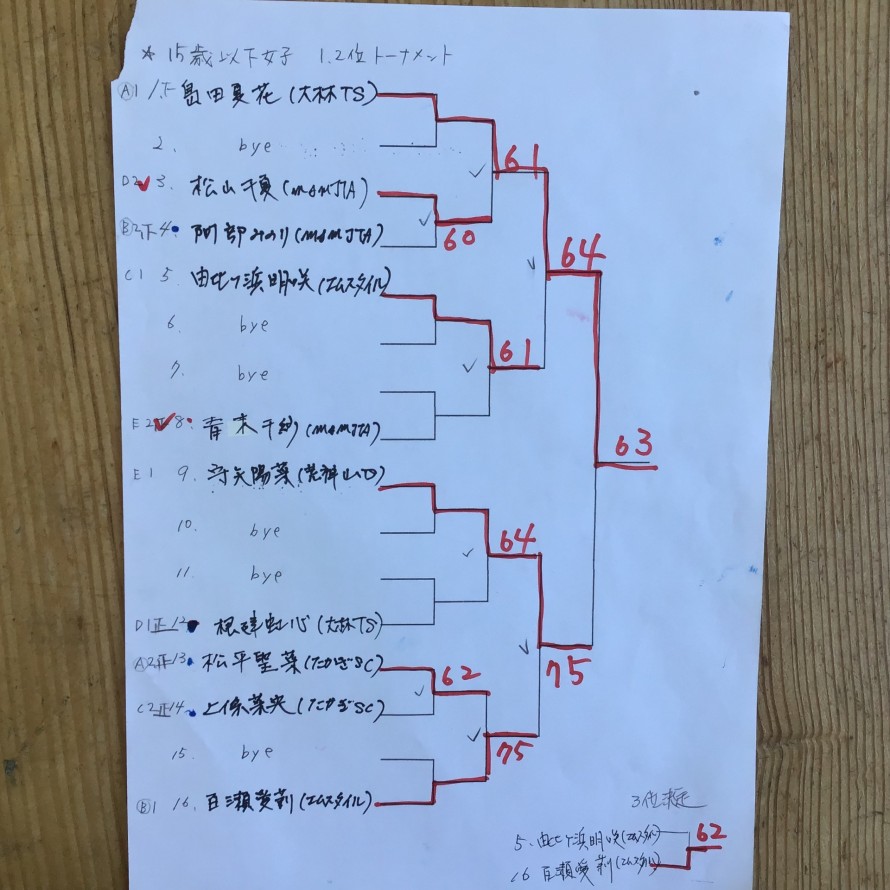 * 15歳以下女子 1.2位トーナメント
A1 1.下 島田夏花(大林TS)
2. bye
D2 3. 松山千真(M&MJTA)
B2下 4. 阿部みのり(M&MJTA)
61
60
64
C1 5 由比ヶ浜明咲(エムスタイル)
6. bye
7. bye
61
E2正 8. 青木千紗(M&MJTA)
63
E1 9. 守矢陽菜(荒神山TS)
10. bye
64
11. bye
D1正 12 根建虹心(大林TS)
A2正 13. 松平聖菜(たかぎSC)
62
75
C2正 14. 上條葉央(たかぎSC)
15. bye
75
B1 16. 百瀬愛莉(エムスタイル)
3位決定
5. 由比ヶ浜明咲(エムスタイル)
62
16 百瀬愛莉(エムスタイル)